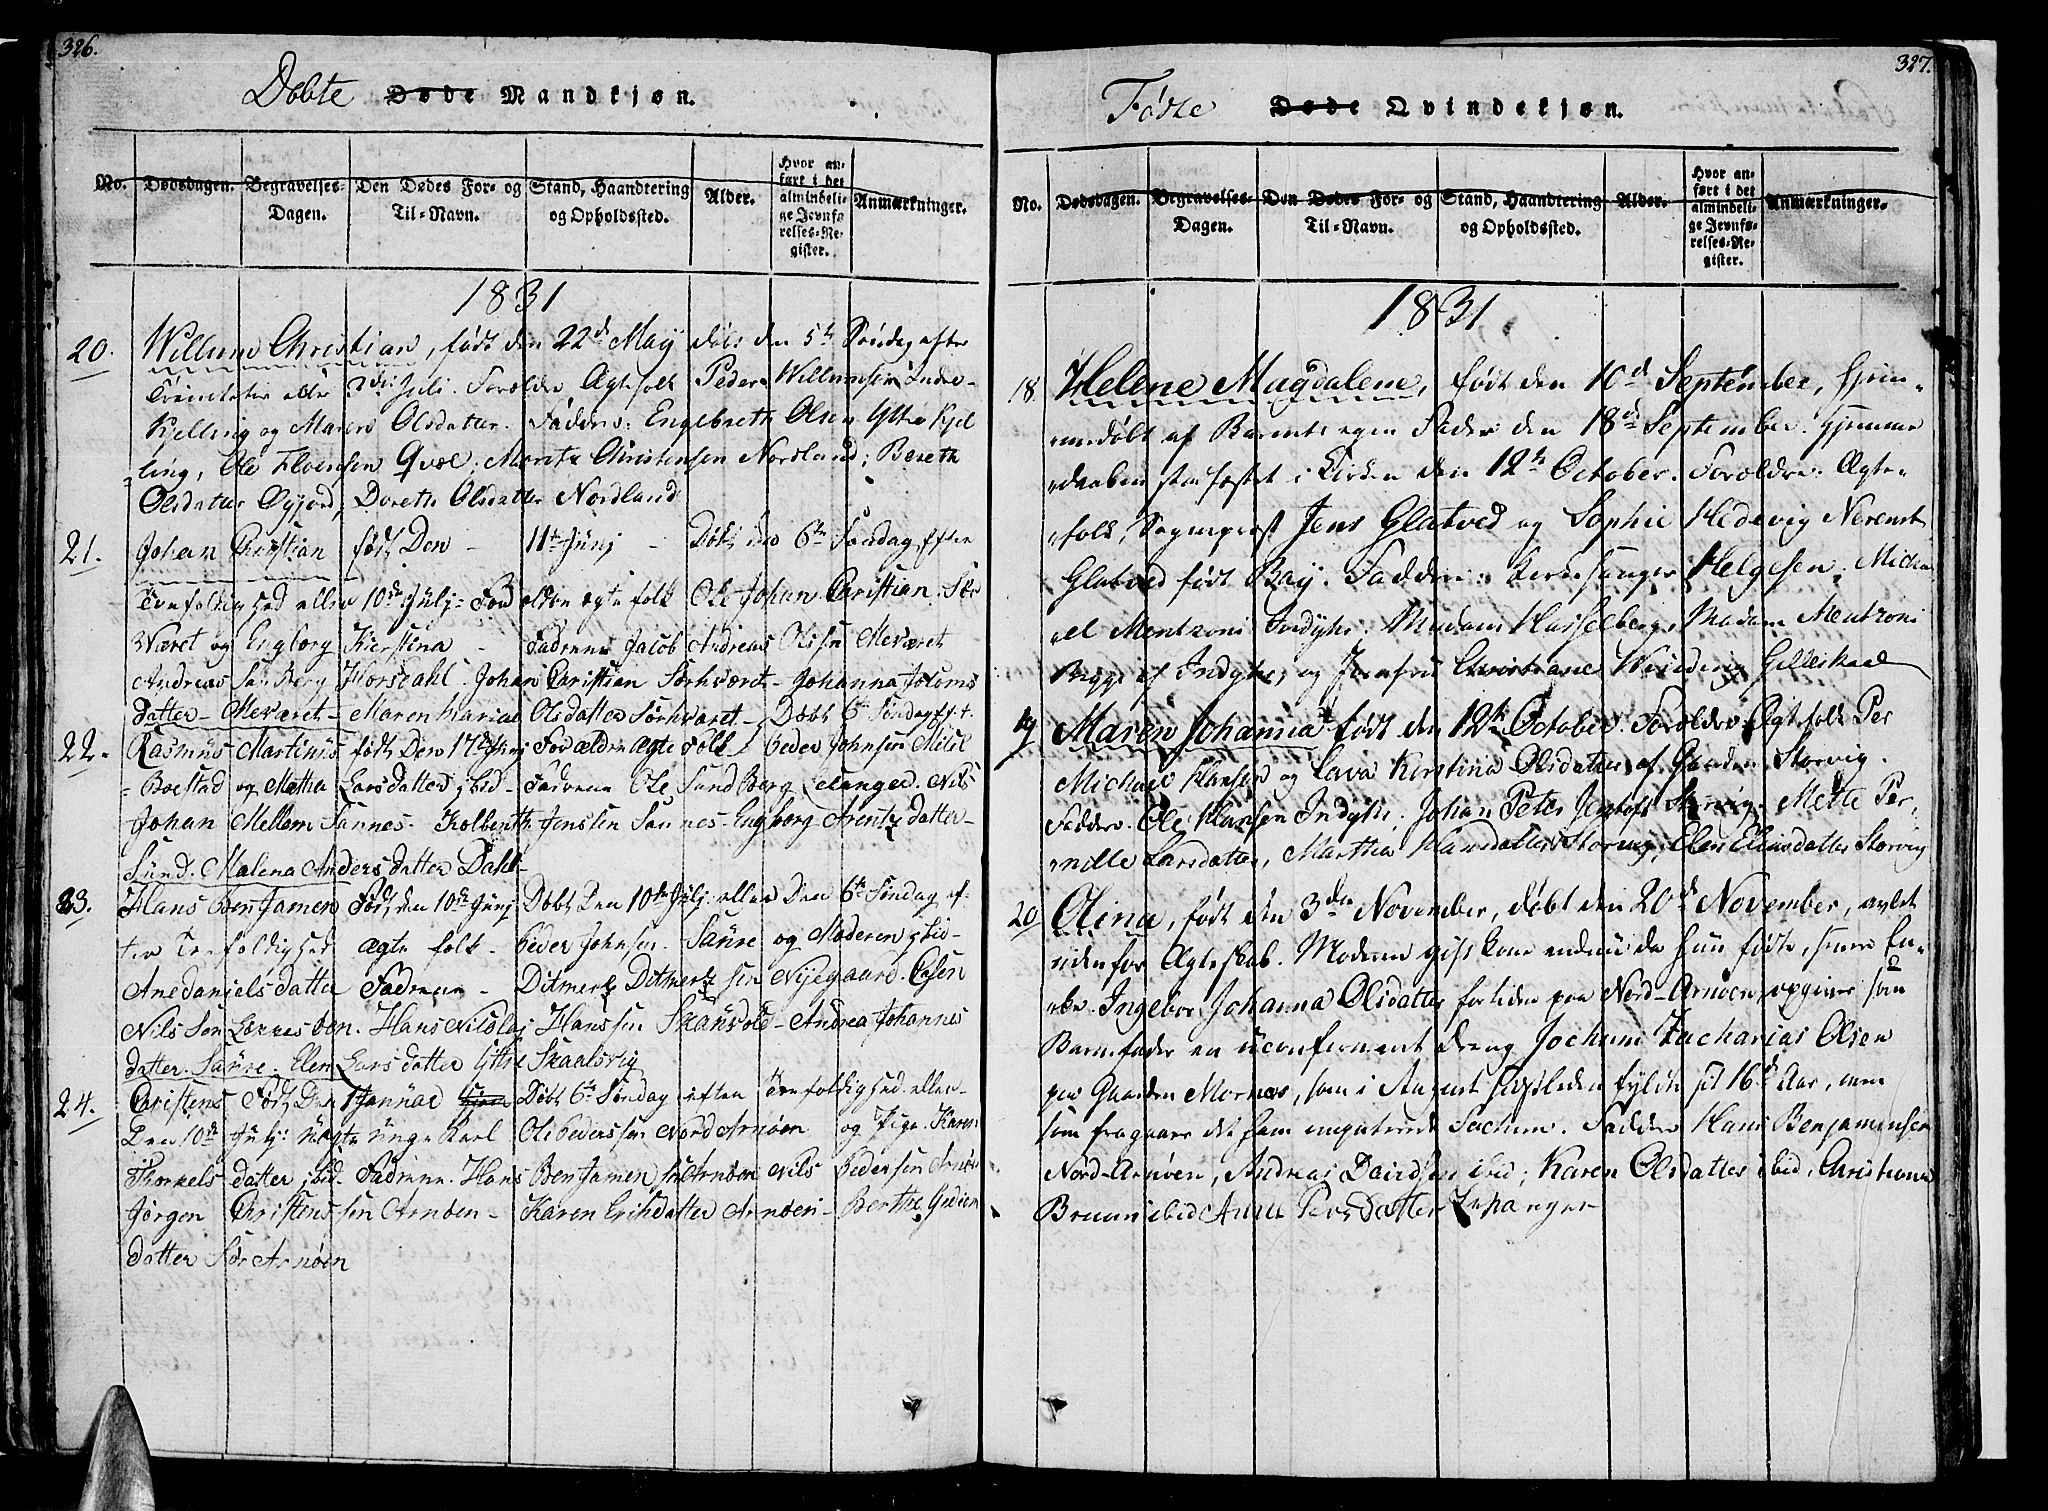 326.
Døbte Døde Mandkjøn.
No.
Dødsdagen.
Begravelses-
Dagen.
Den Dødes For- og
Til-Navn.
Stand, Haandtering
og Opholdssted.
Alder.
Hvor an-
ført i det
almindeli-
ge Jevnfø
relses-Re-
gister.
Anmærkninger.
1831
20. Willum Christian, født den 22d May døbt den 5te Søndag efter
Trinitatis eller 3die Juli. Forældre Ægtefolk Peder Willumsen Indre-
Kjelling og Maren Olsdatter. Faddere: Engebreth Olsen Ytre Kjel
ling, Ole Qvæl, Morits Christensen Nordland; Bereth
Olsdatter Øyjord, Doreth Olsdatter Nordland
21. Johan Christian født Den - 11te Junj - Døbt 6te Søndag efter
Trefoldighed eller 10de Julj - Forældre ægte folk Ole Johan Christian Sør
Været og Engborg Kierstina - Fadrene Jacob Andreas Olssen Meværet
Andreas Sandberg Horsdahl. Johan Christian Sørhværet - Johanna
datter - Meværet - Maren Maria Olsdatter Sørhværet - Døbt 6te Søndag
22. Rasmus Martinus født Den 17de Junj Forældre ægte Folk Peder Johnsen
Boestad og Martha Larsdatter ibid - Fadrene Ole Sandberg Nils
Johan Mellem Sannes. Kolbenth Jenssen Sannes - Engborg Arentz datter -
Sund. Malena Anders datter Dahl
23. Hans Ben Jamen Født den 10de Junj Døbt Den 10de Julj eller Den 6te Søndag ef-
ter Trefoldighed ægte folk - Peder Johnsen Saure og Moderen ibid -
Ane daniels datter Fadrene - Ditmertz Ditmertz sen Nyegaard. Esen
Nils Søn. Hans Nikolaj Hanssen Skansold - Andrea Johannes
datter. Saure. Elen Lars datter Ytre Skaalsvig
24. Christens Født Den 1 Jannar Døbt 6te Søndag eften Trefoldighed eller
Den 10de Julj: Uægte Unge Karl Ole Pederssen Nord Arnøen og Pige Karen
Thorkels datter ibid. Fadrene. Hans Ben Jamen sen Arnøen Nils Pedersen Arnøen
Jørgen Christens sen Arnøen - Karen Eriksdatter Arnøen - Berthe Gedion
datter Sør Arnøen
327.
Fødte Døde Qvindekjøn.
No.
Dødsdagen.
Begravelses-
Dagen.
Den Dødes For- og
Til-Navn.
Stand, Haandtering
og Opholdssted.
Alder.
Hvor an-
ført i det
almindeli-
ge Jevnfø-
relses-Re-
gister.
Anmærkninger.
1831
18. Helene Magdalene, født den 10d September, hjem-
medøbt af Barnets egen Fader den 18d September. Hjemme
daaben stadfæstet i Kirken den 12te October. Forældre: Ægte-
folk, Sogneprest Jens Glatved og Sophie Hedevig Nerenst
Glatved født Baÿ. Faddere: Kirkesanger Helgesen, Micha
el Mentzoni Indyhr, Madam Hasselberg, Madam Mentzoni
begge af Indyhr, og Jomfru Christiane Weideing Gilleskaal
19 Maren Johanna født den 12te October. Forældre Ægtefolk Per
Michael Hansen og Lava Kirstina Olsdatter af Gaarden Storvig.
Faddere. Ole Hansen Indyhr, Johan Peter Jentoft Storvig. Mette Per
nille Larsdatter, Martha Hansdatter Storvig, Elen Elinsdatter Storvig
20 Olina, født den 3die November, døbt den 20d November, avlet
udenfor Ægteskab. Moderen gift kone endnu da hun fødte, senere En-
ke Ingebor Johanna Olsdatter fortiden paa Nord-Arnøen, opgiver som
Barnefader en uconfirmeret Dreng Jochum Zacharias Olsen
paa Gaarden Mornæs, som i August sidstleden fyldte sit 16d Aar, men
som fragaaer det ham imputerede Factum. Faddere Hans Benjaminsen
Nord-Arnøen, Andreas Davidsen ibid; Karen Olsdatter ibid, Christianna
Bruun ibid Anne Persdatter